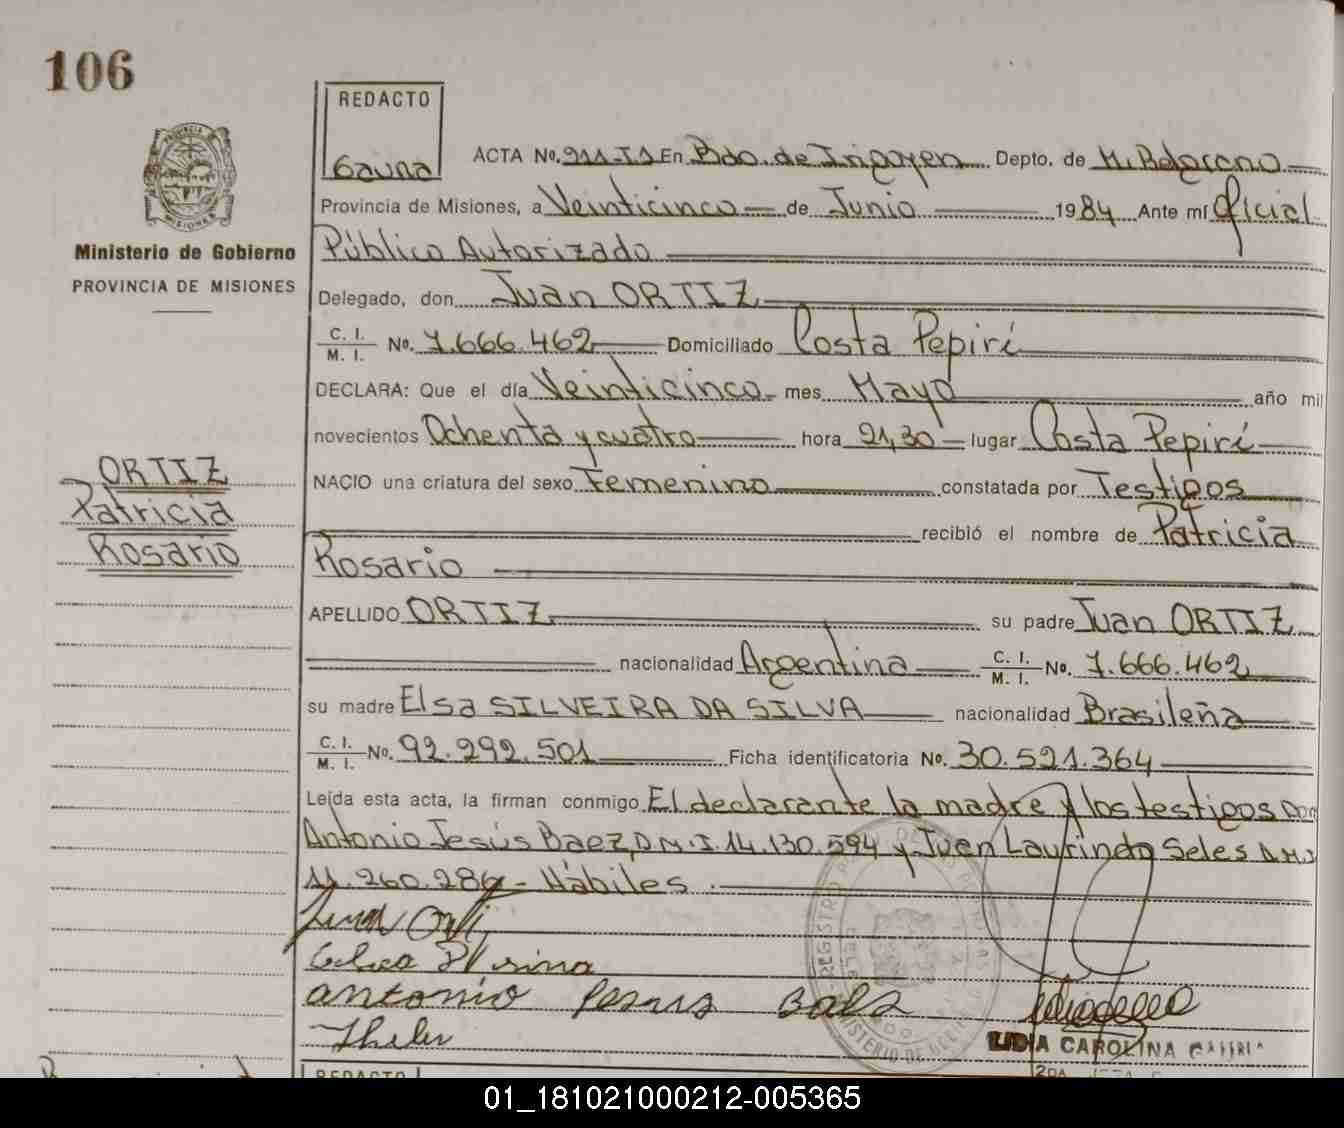 106
REDACTO
Gauna
ACTA No. 911-T1 En Bdo. de Irigoyen Depto. de M. Belgrano
Provincia de Misiones, a Veinticinco de Junio 1984 Ante mí Oficial
Ministerio de Gobierno
PROVINCIA DE MISIONES
Público Autorizado
Delegado, don Juan ORTIZ
C. I. M. I. No. 7.666.462 Domiciliado Costa Pepirí
DECLARA: Que el día Veinticinco mes Mayo año mil
novecientos Ochenta y cuatro hora 21,30 lugar Costa Pepirí
ORTIZ
Patricia
Rosario
NACIO una criatura del sexo Femenino constatada por Testigos
recibió el nombre de Patricia
Rosario
APELLIDO ORTIZ su padre Juan ORTIZ
nacionalidad Argentina C. I. M. I. No. 7.666.462
su madre Elsa SILVEIRA DA SILVA nacionalidad Brasileña
C. I. M. I. No. 92.292.501 Ficha identificatoria No. 30.521.364
Leída esta acta, la firman conmigo El declarante la madre y los testigos Don
Antonio Jesús Baez, D.M.I. 14.130.594 y Juan Laurindo Seles D.M.I
11.260.289 - Hábiles.
antonio Jesus Baez
LIDIA CAROLINA
REDACTO
01_181021000212-005365